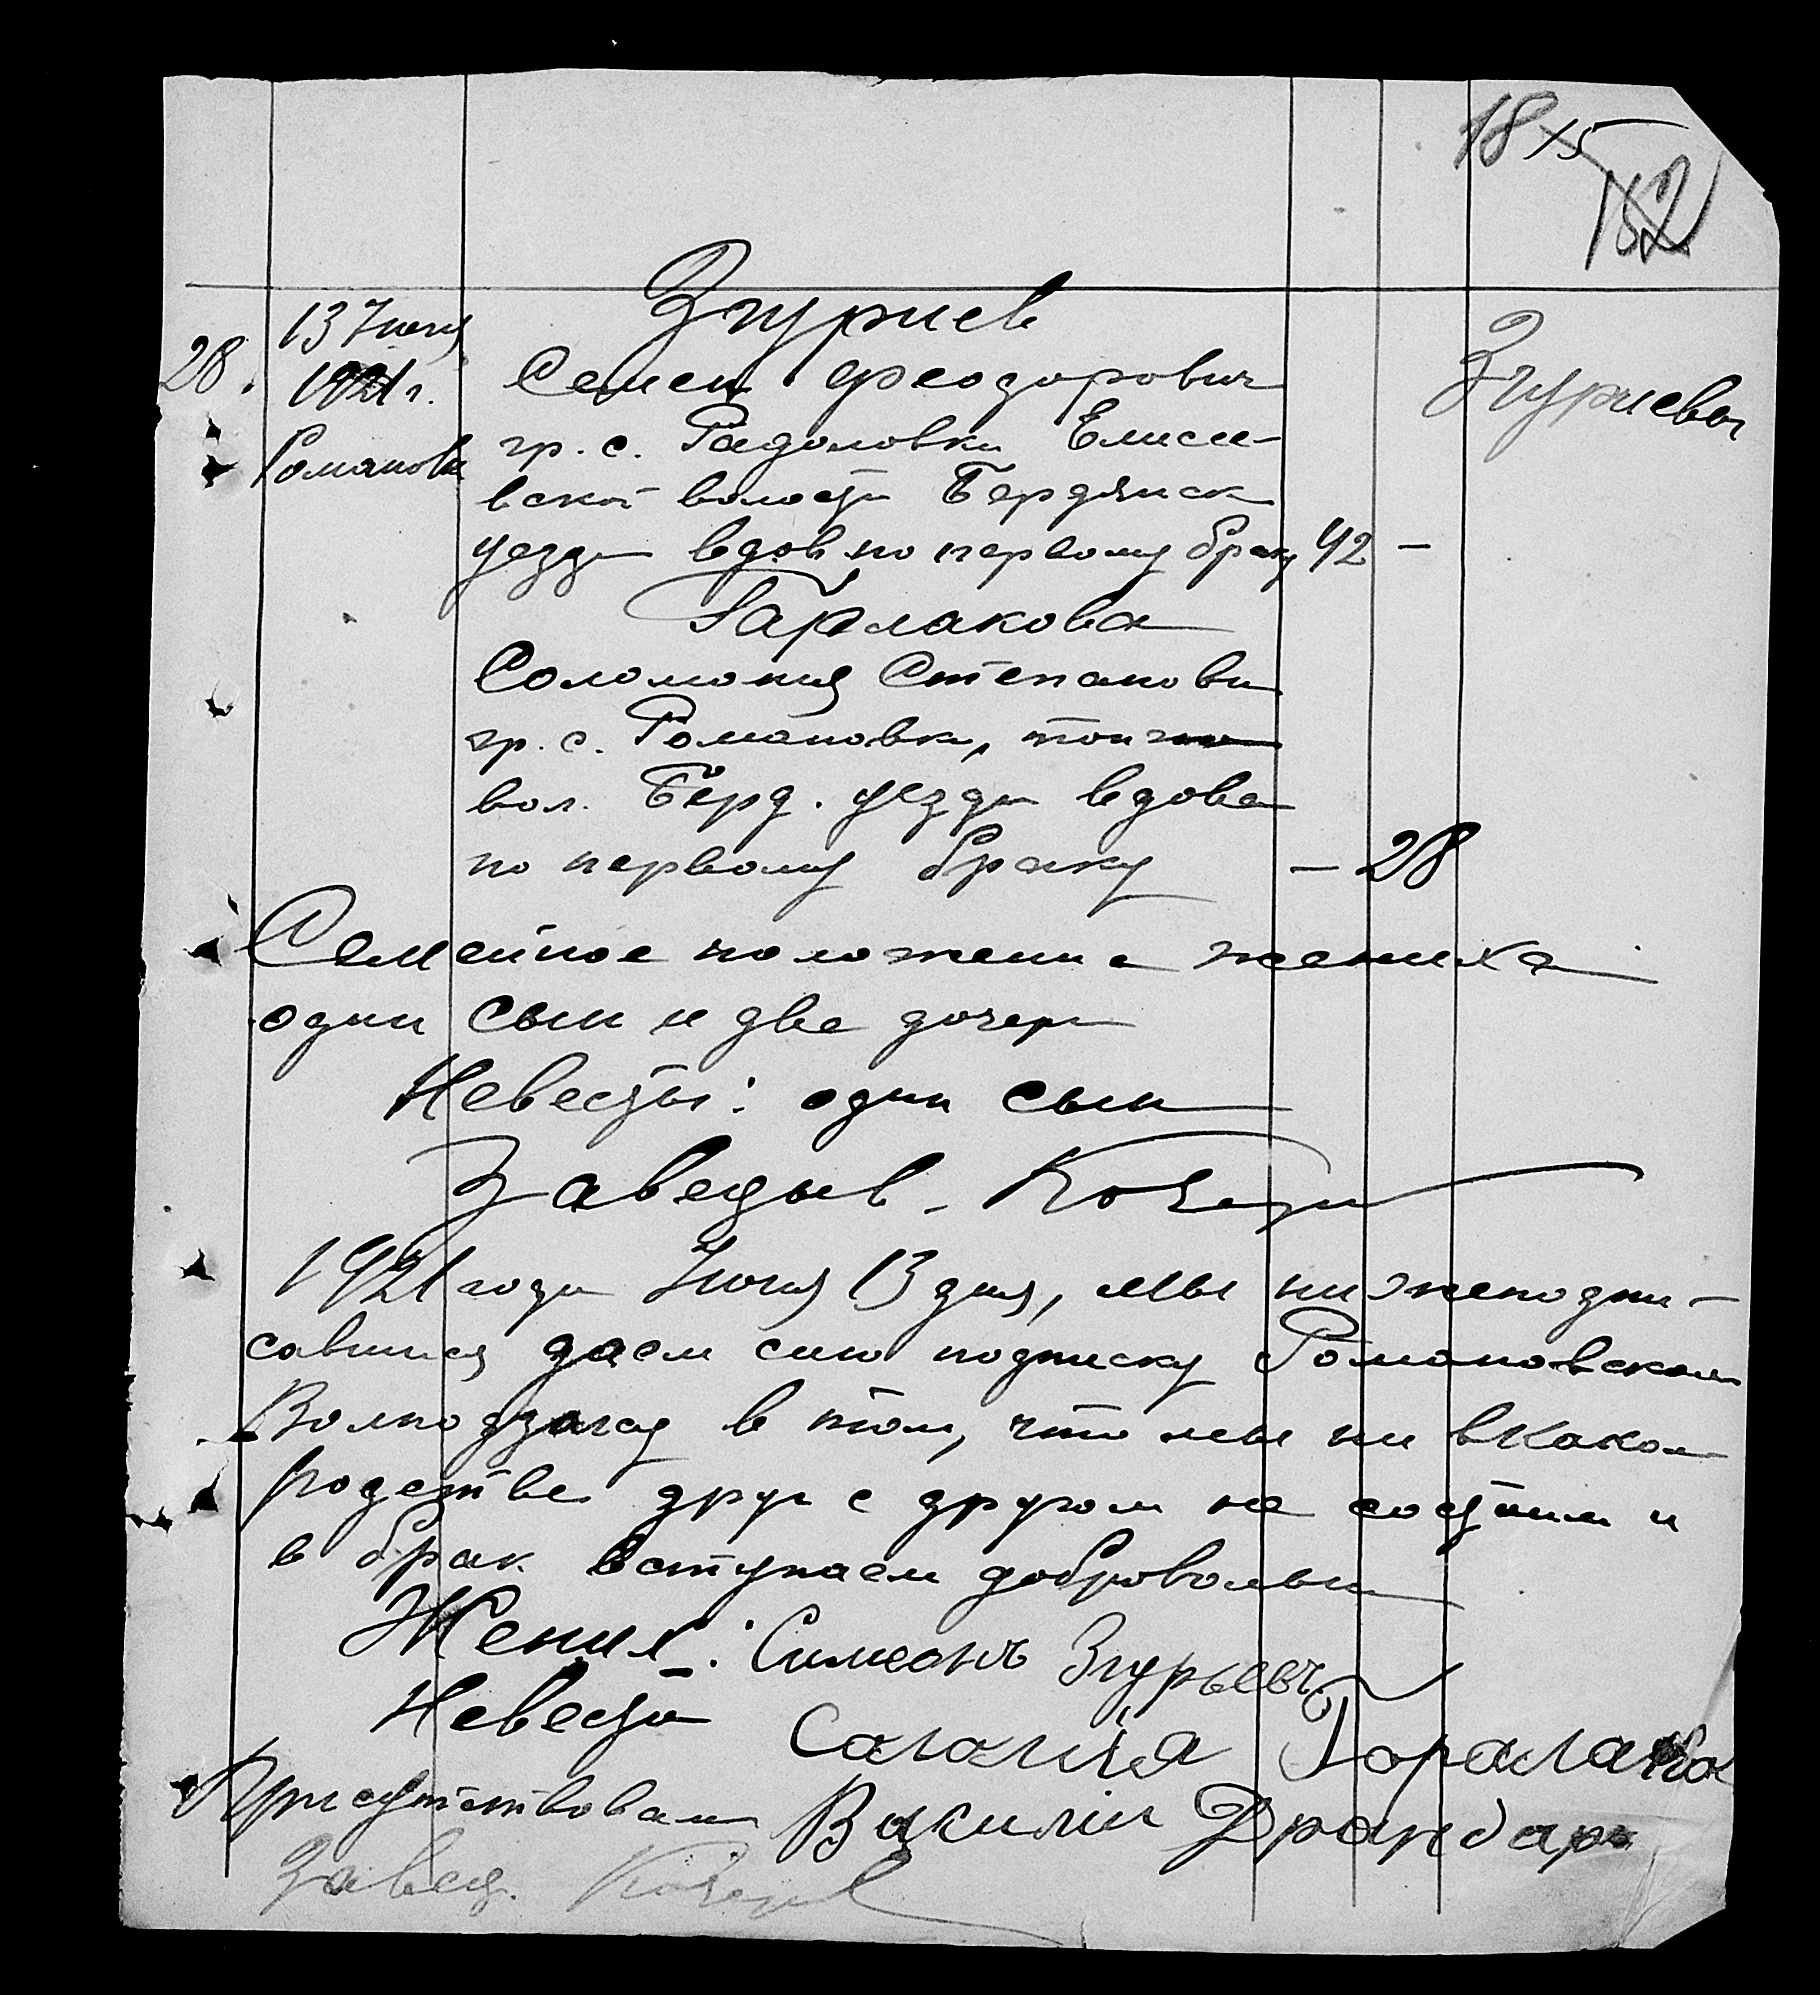 18 15
152
Згуриев
28. 13 Июня
1921 г.
Романовк
Семен Феодорович
гр. с. Радоловки Елисе-
вской волости Бердянск
уезда вдов по первому браку 42 –
Згуриевы
Гарлакова
Соломония Степановн
гр. с. Романовки, той же
вол. Берд. уезда вдова
по первому браку – 28
Семейное положение жениха
один сын и две дочери
Невесты: один сын
Заведыв.
1921 года Июня 13 дня, мы нижеподпи-
савшися даем сию подписку Романовском
Волподзагсу в том, что мы ни в каком
родстве друг с другом не состоим и
в брак вступаем добровольно
Жених: Симеонъ Згурьевъ
Невеста Саламія
Присутствовали Василій Драндаръ
Завед.